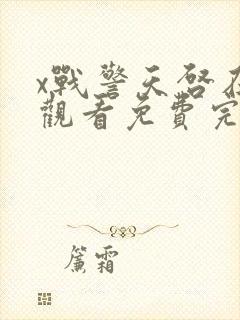 x戰警天啓在
觀看免費完
簾霜